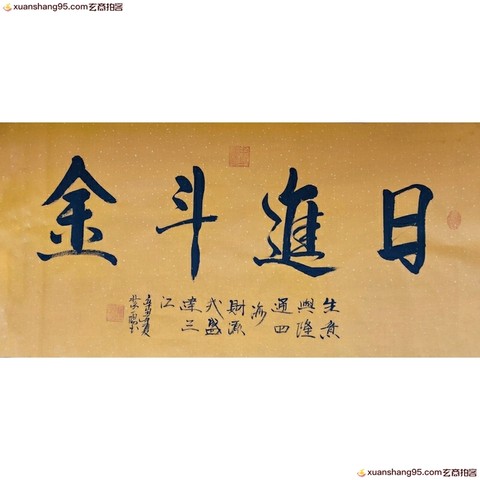 xuanshang95.com玄商拍客
日進斗金
生意
興隆
通四
海
財源
茂盛
達三
江
xuanshang95.com玄商拍客